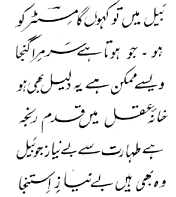 بَیل میں تو کہوں گا مِسٹر کو
ہو - جو ہوتا ہے سَر مِرا گنجا
ویسے ممکن ہے یہ دلیل بھی ہو
خانۂ عقل میں قدم رنجہ
ہے طہارت سے بے نیاز جو بَیل
وہ بھی ہیں بے نیازِ اِستنجا